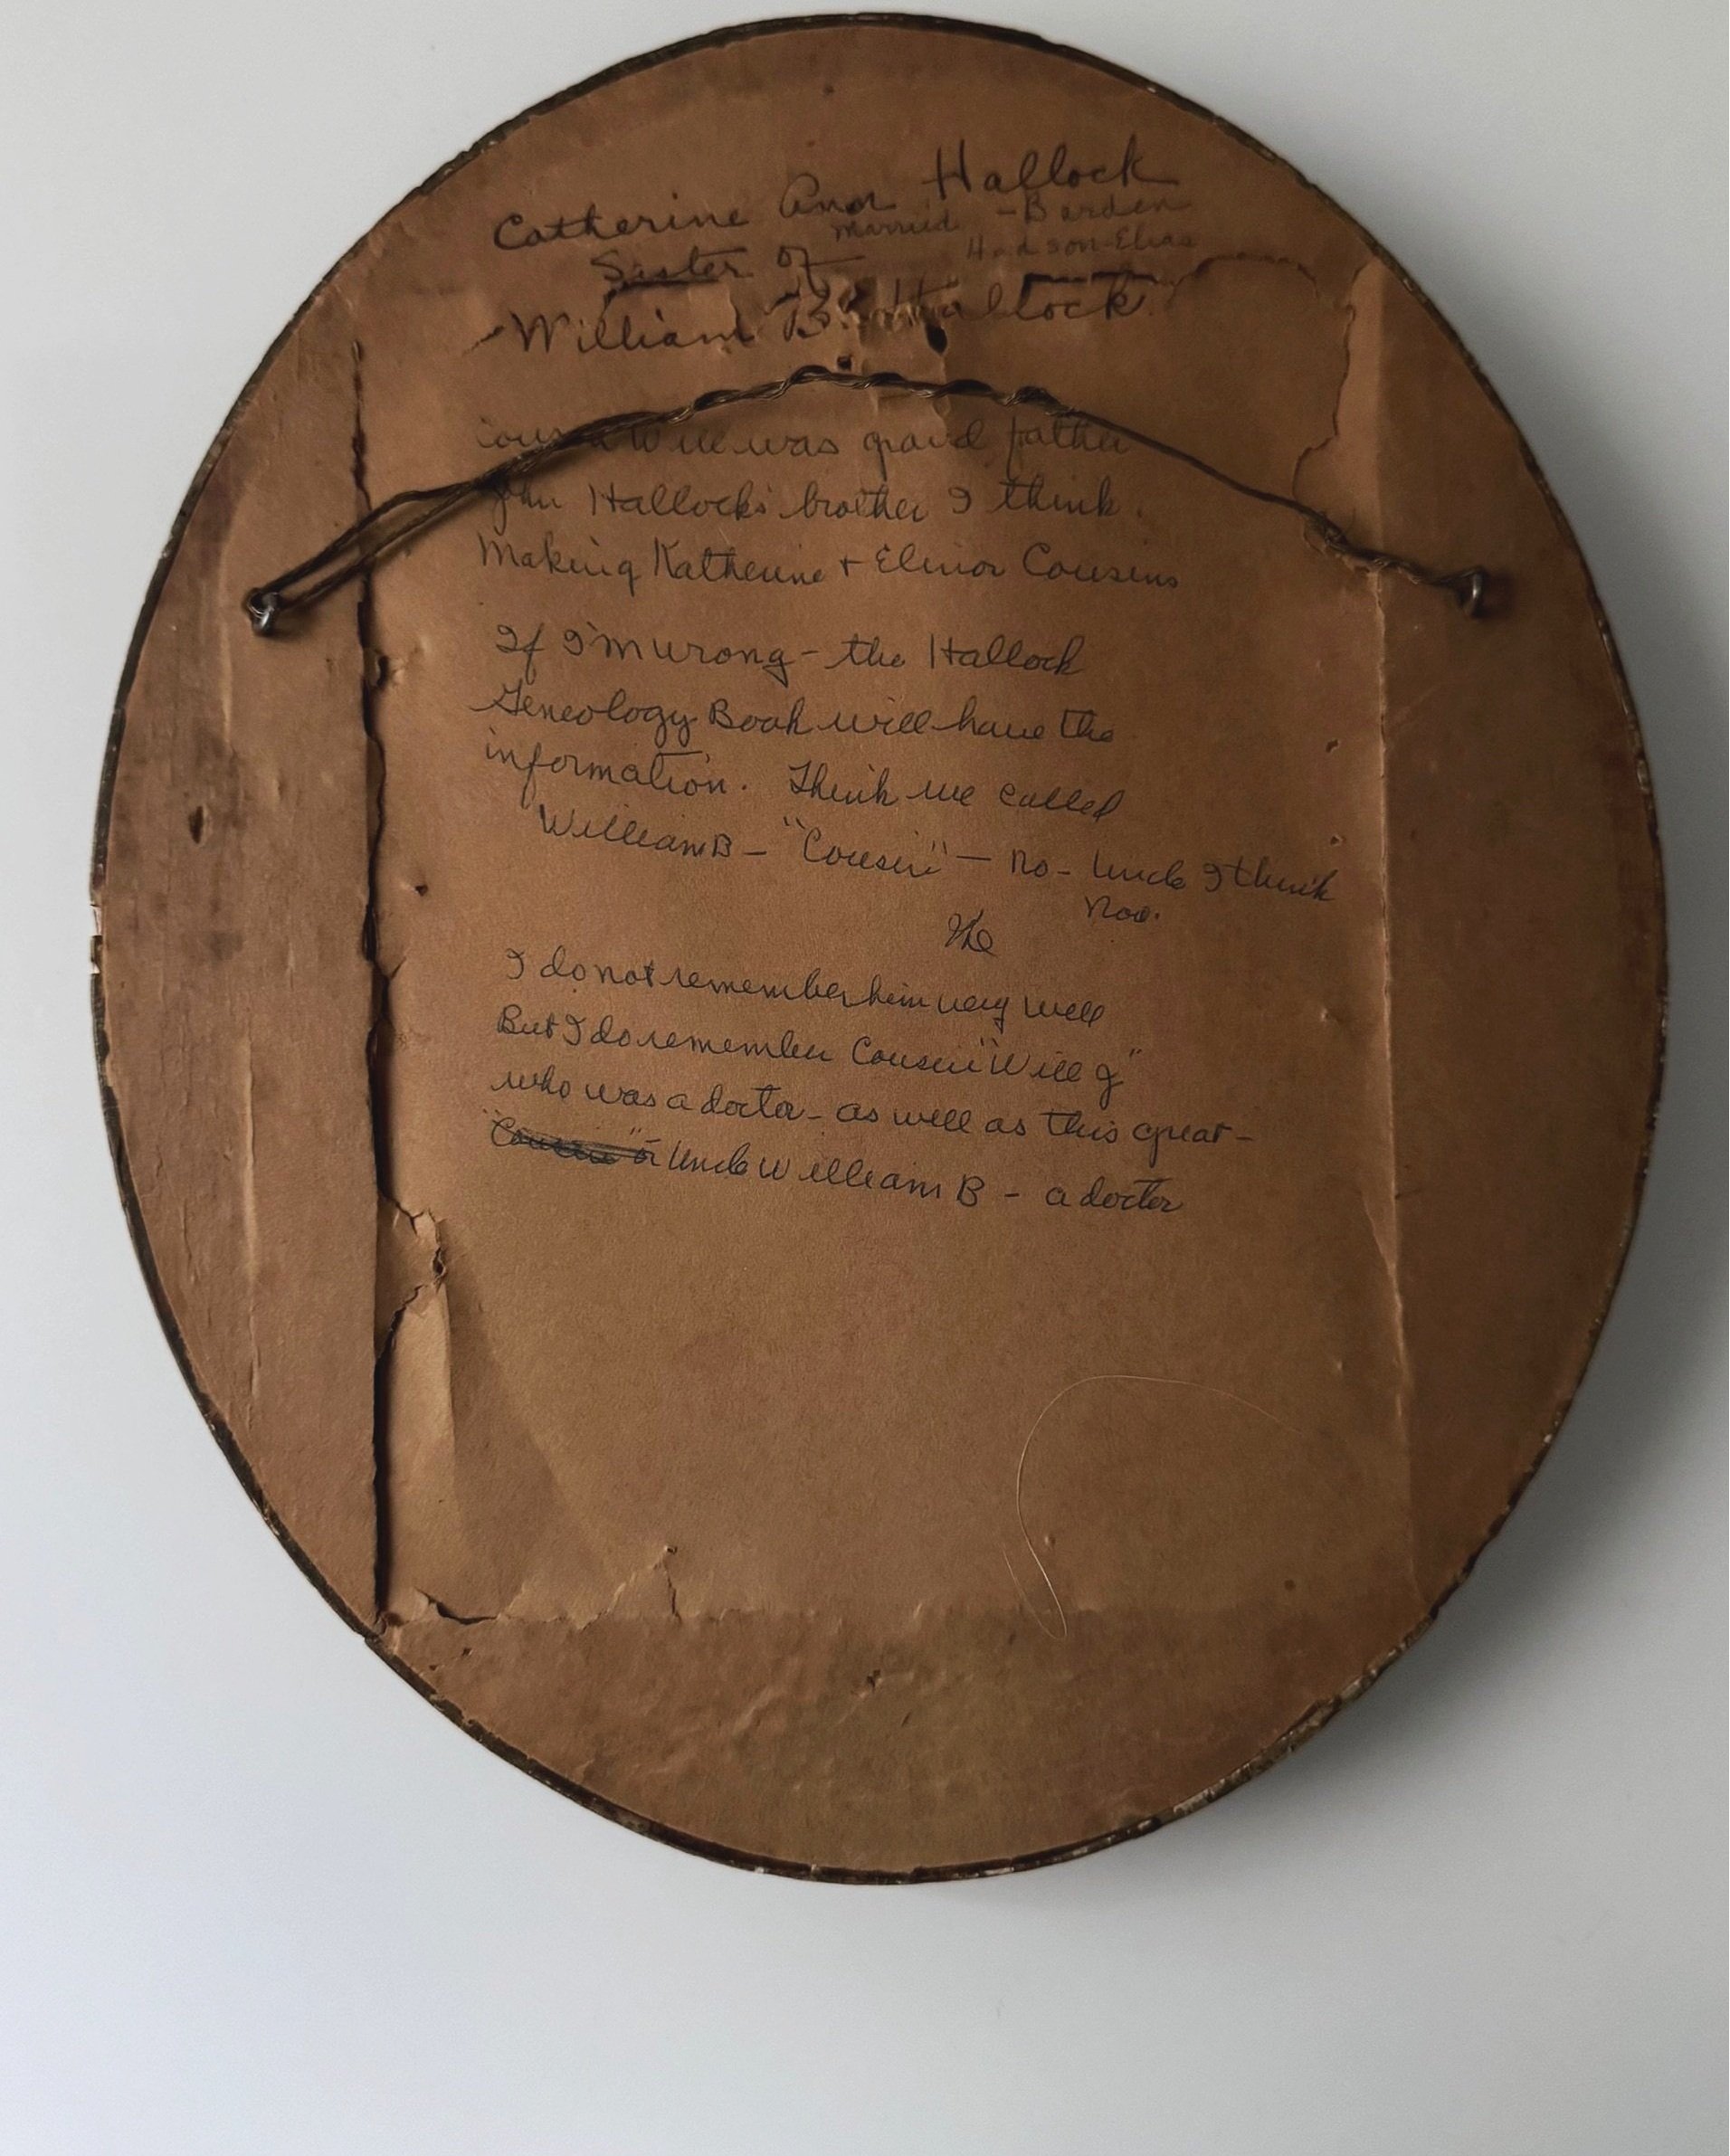 Catherine Ann Hallock
married - Barden
Sister of Hudson-Elias
William B. Hallock
cousin Will was grand father
John Hallock's brother I think.
Making Katherine + Elinor Cousins
If I'm wrong - the Hallock
Geneology Book will have the
information. Think we called
William B - "Cousin" - no - Uncle I think
now.
I do not remember him very well
But I do remember Cousin "Will g"
who was a doctor - as well as this great-
"Cousin" or Uncle William B - a doctor